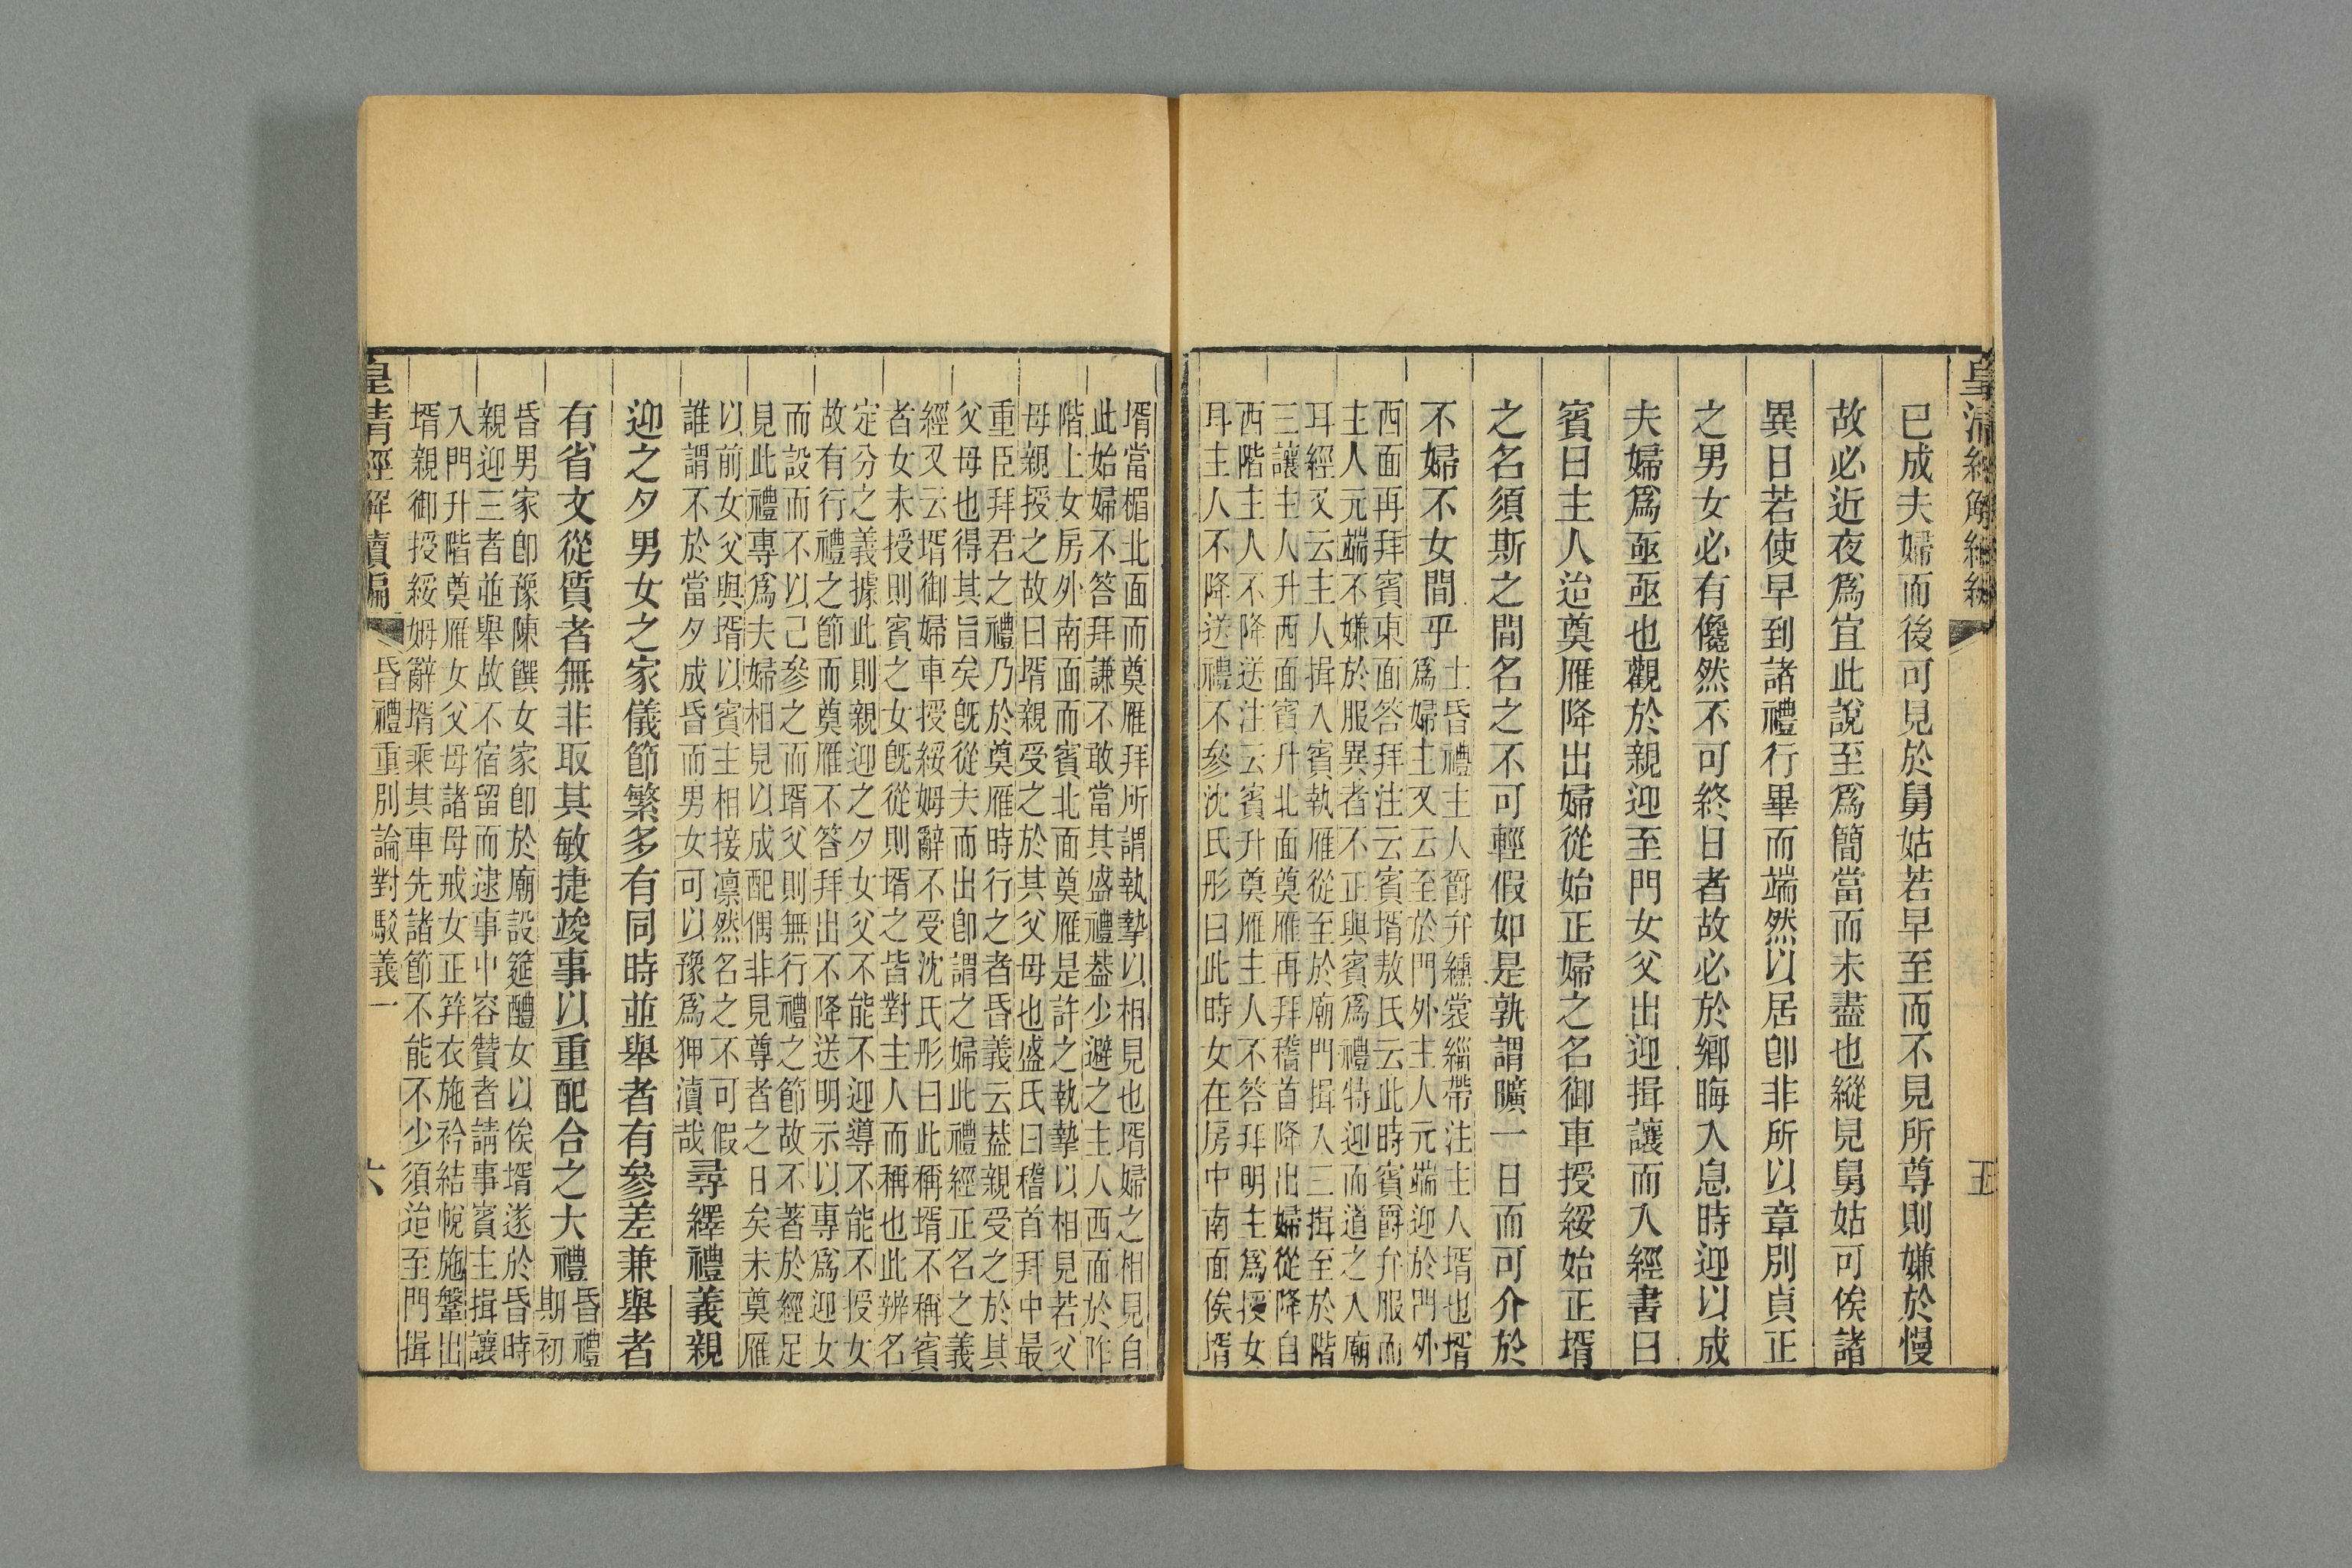 皇清經解續編
五
已成夫婦而後可見於舅姑若早至而不見所尊則嫌於慢
故必近夜爲宜此說至爲簡當而未盡也縱見舅姑可俟諸
異日若使早到諸禮行畢而端然以居卽非所以章別貞正
之男女必有儳然不可終日者故必於鄉晦入息時迎以成
夫婦爲亟亟也觀於親迎至門女父出迎揖讓而入經書曰
賓曰主人迨奠雁降出婦從始正婦之名御車授綏始正壻
之名須斯之閒名之不可輕假如是孰謂曠一日而可介於
不婦不女間乎
士昏禮主人爵弁纁裳緇帶注主人壻也壻
爲婦主又云至於門外主人元端迎於門外
西面再拜賓東面答拜注云賓壻敖氏云此時賓爵弁服而
主人元端不嫌於服異者不正與賓爲禮特迎而道之入廟
耳經又云主人揖入賓執雁從至於廟門揖入三揖至於階
三讓主人升西面賓升北面奠雁再拜稽首降出婦從降自
西階主人不降送注云賓升奠雁主人不答拜明主爲授女
耳主人不降送禮不參沈氏彤曰此時女在房中南面俟壻
壻當楣北面而奠雁拜所謂執摯以相見也壻婦之相見自
此始婦不答拜謙不敢當其盛禮葢少避之主人西面於阼
階上女房外南面而賓北面奠雁是許之執摯以相見若父
母親授之故曰壻親受之於其父母也盛氏曰稽首拜中最
重臣拜君之禮乃於奠雁時行之者昏義云葢親受之於其
父母也得其旨矣旣從夫而出卽謂之婦此禮經正名之義
經又云壻御婦車授綏姆辭不受沈氏彤曰此稱壻不稱賓
者女未授則賓之女旣從則壻之皆對主人而稱也此辨名
定分之義據此則親迎之夕女父不能不迎導不能不授女
故有行禮之節而奠雁不答拜出不降送明示以專爲迎女
而設而不以己參之而壻父則無行禮之節故不著於經足
見此禮專爲夫婦相見以成配偶非見尊者之日矣未奠雁
以前女父與壻以賓主相接凛然名之不可假
誰謂不於當夕成昏而男女可以豫爲狎瀆哉
尋繹禮義親
迎之夕男女之家儀節繁多有同時並舉者有參差兼舉者
有省文從質者無非取其敏捷竣事以重配合之大禮
昏禮
期初
昏男家卽豫陳饌女家卽於廟設筵醴女以俟壻遂於昏時
親迎三者並舉故不宿留而逮事中容贊者請事賓主揖讓
入門升階奠雁女父母諸母戒女正笄衣施衿結帨施鞶出
壻親御授綏姆辭壻乘其車先諸節不能不少須迨至門揖
皇清經解續編
昏禮重別論對駁義一
六